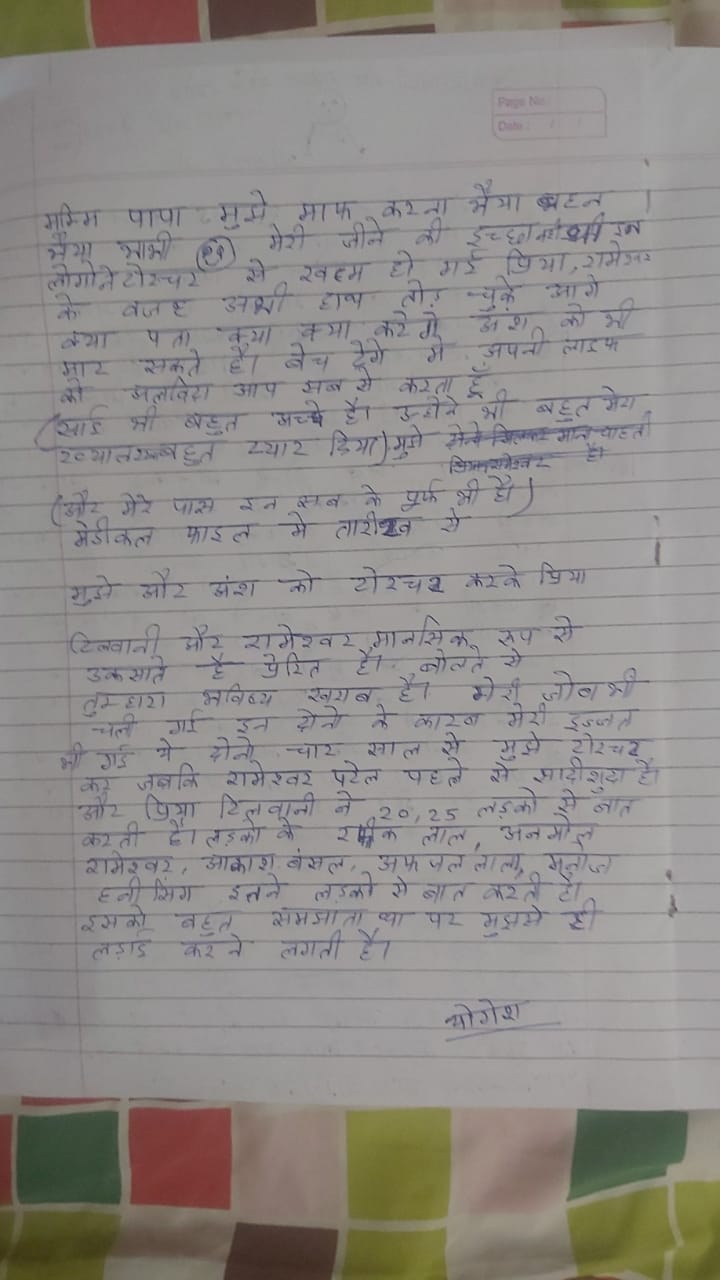 Page No.:
Date: / /
मम्मि पापा मुझे माफ करना भैया बहन
भैया भाभी मेरी जीने की इच्छा नही थी इन
लोगोने टोरचर से खत्म हो गई प्रिया, रामेश्वर
के वजह अभी हाथ तोड़ चुके आगे
क्या पता क्या क्या करेगे अंश को भी
मार सकते है। बेच देंगे मे अपनी लाइफ
को अलविदा आप सब से करता हूँ
(साई भी बहुत अच्छे है। उन्होने भी बहुत मेरा
ख्याल बहुत प्यार दिया) मुझे
है।
(और मेरे पास इन सब के पुर्फ भी है।)
मेडीकल फाइल मे तारीख से
मुझे और अंश को टोरचर करके प्रिया
टिलवानी और रामेश्वर मानसिक रूप से
उकसाते है प्रेरित है। बोलते से
तुम्हारा भविष्य खराब है। मेरी जोब भी
चली गई इन दोनो के कारण मेरी इज्जत
भी गई ये दोनो चार साल से मुझे टोरचर
कर जबकि रामेश्वर पटेल पहले से सादीशुदा है।
और प्रिया टिलवानी ने 20,25 लड़को से बात
करती है। लड़को के लाल, अनमोल
रामेश्वर, आकाश बंसल, अफजल लाला, मनोज
हनी सिंग इतने लड़को से बात करती है।
इसको बहुत समझाता था पर मुझसे ही
लड़ाई करने लगती है।
योगेश